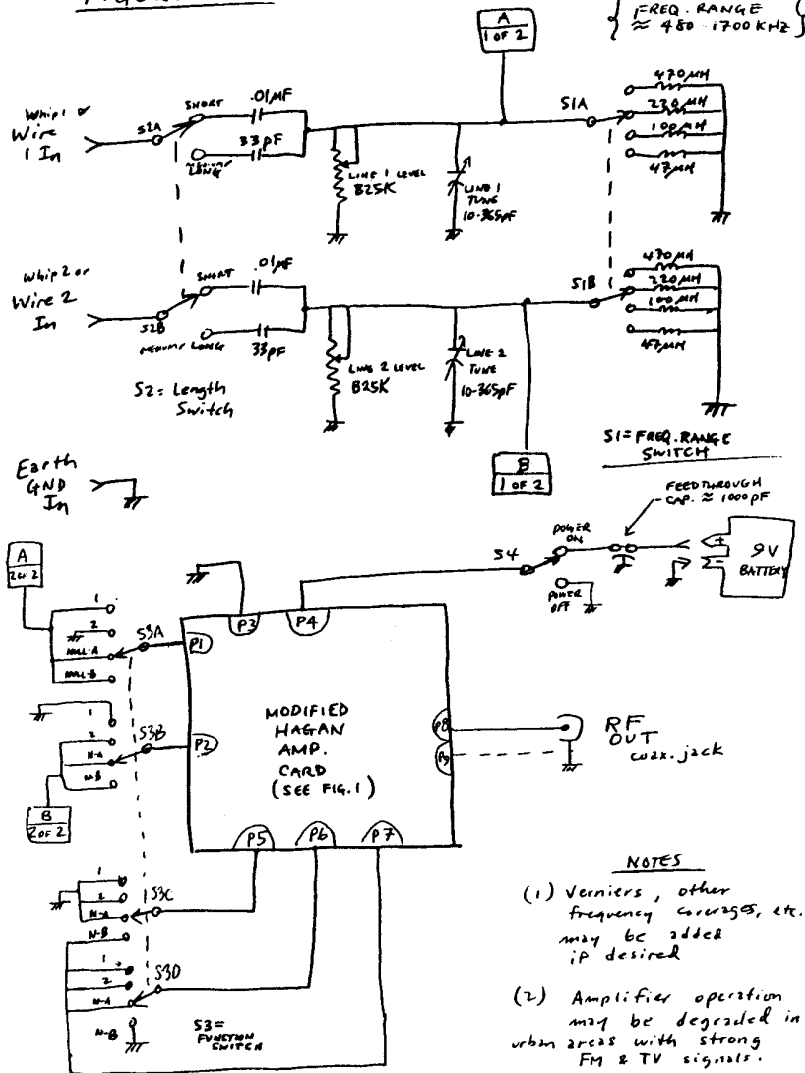 FREQ. RANGE
≈ 480 - 1700 KHZ
A
1 OF 2
Whip 1 or
Wire
1 In
S2A
SHORT
.01µF
33pF
LINE 1 LEVEL
B25K
LINE 1
TUNE
10-365pF
S1A
470µH
220µH
100µH
47µH
Whip 2 or
Wire 2
In
S2B
SHORT
.01µF
MEDIUM/LONG
33pF
LINE 2 LEVEL
B25K
LINE 2
TUNE
10-365pF
S1B
470µH
220µH
100µH
47µH
S2= Length
Switch
B
1 OF 2
S1=FREQ. RANGE
SWITCH
Earth
GND
In
FEEDTHROUGH
CAP. ≈ 1000pF
POWER
ON
S4
POWER
OFF
+
-
9V
BATTERY
A
2 OF 2
1
2
NULL-A
NULL-B
S3A
P1
P3
P4
1
2
N-A
N-B
S3B
P2
B
2 OF 2
MODIFIED
HAGAN
AMP.
CARD
(SEE FIG. 1)
P8
P9
RF
OUT
coax. jack
P5
P6
P7
1
2
N-A
N-B
S3C
1
2
N-A
N-B
S3D
S3=
FUNCTION
SWITCH
NOTES
(1) Verniers, other
frequency coverages, etc.
may be added
if desired
(2) Amplifier operation
may be degraded in
urban areas with strong
FM & TV signals.